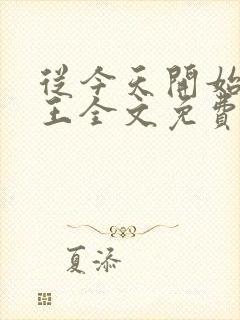 從今天開始
王全文免費
夏添